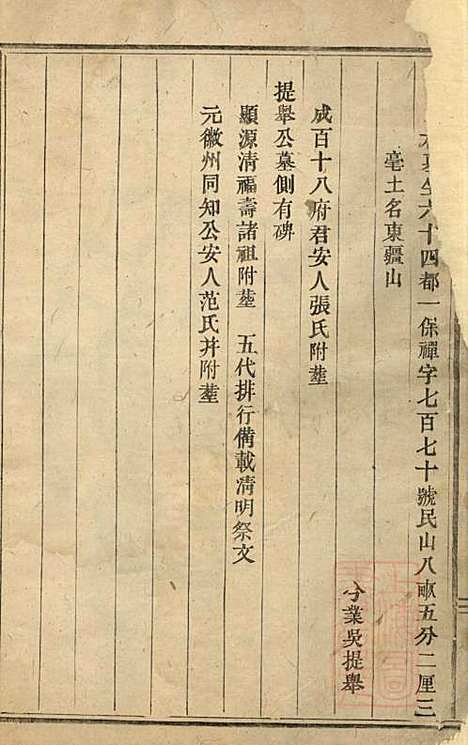 墓坐六十四都一保禪字七百七十號民山八畝五分二厘三
毫土名東疆山
分業吳提舉
成百十八府君安人張氏附塟
提舉公墓側有碑
顯源清福壽諸祖附塟　五代排行備載清明祭文
元徽州同知公安人范氏并附塟